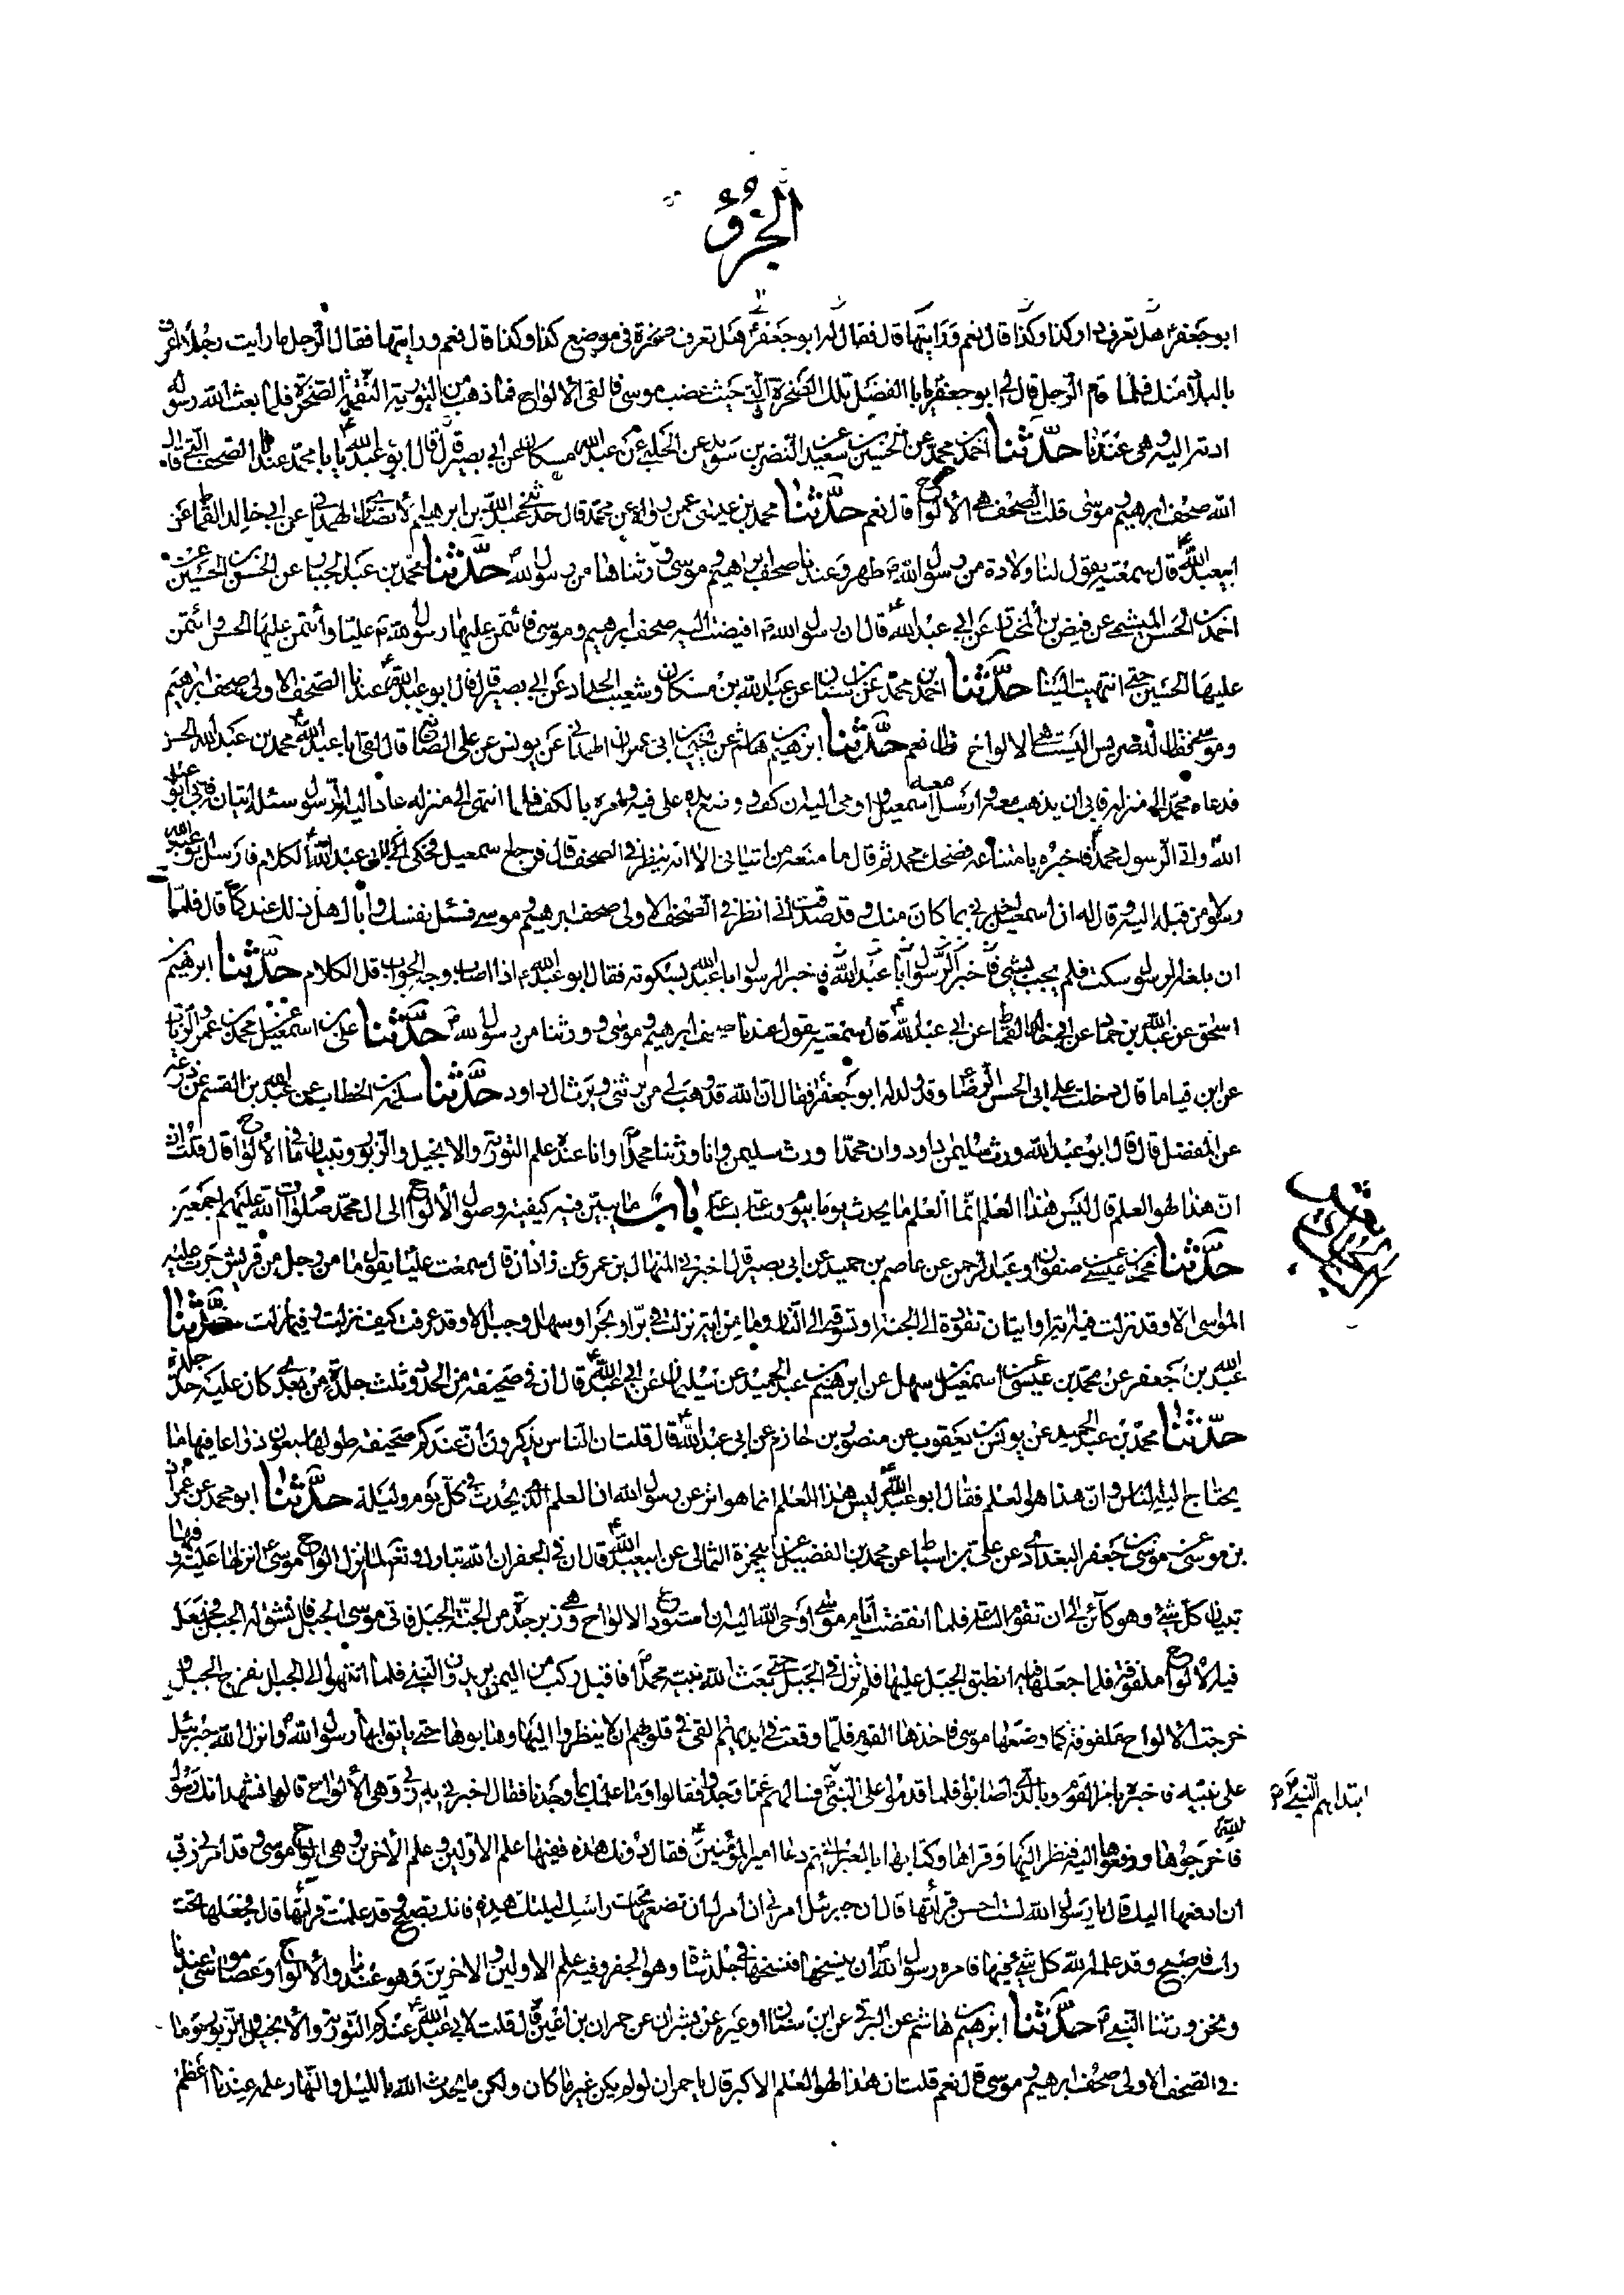 الجزؤ
ابو جعفرؑ هل تعرف دارا كذا وكذا قال نعم ورايتها قال فقال له ابو جعفرؑ هل تعرف صخرة في موضع كذا وكذا قال نعم ورايتها فقال الرجل ما رايت رجلا اعرف
بالبلاد منك فلما قام الرجل قال لي ابو جعفرؑ يا با الفضل تلك الصخرة التي حيث غضب موسى فالقى الالواح فما ذهب من التورية التقمته الصخرة فلما بعث الله رسوله
ادته اليه وهى عندنا حدّثنا احمد بن محمد عن الحسين بن سعيد عن النضر بن سويد عن الحلبى عن عبد الله بن مسكان عن ابى بصير قال قال ابو عبد اللهؑ يا با محمد عندنا الصحف التى قال
الله صحف ابرهيم وموسى قلت الصحف هى الالواح قال نعم حدّثنا محمد بن عيسى عمن رواه عن محمد قال حدثنى عبد الله بن ابرهيم الانصارى الهمدانى عن ابى خالد القماط عن
ابيعبد اللهؑ قال سمعته يقول لنا ولادة من رسول اللهؐ طهر وعندنا صحف ابرهيم وموسى ورثناها من رسول اللهؐ حدّثنا محمد بن عبد الجبار عن الحسن بن الحسين عن
احمد بن الحسن الميثمى عن فيض بن المختار عن ابى عبد اللهؑ قال ان رسول اللهؐ افيضت اليه صحف ابرهيم وموسى فائتمن عليها رسول اللهؐ عليا وائتمن عليها الحسن وائتمن
عليها الحسين حتى انتهيت الينا حدّثنا احمد بن محمد عن ابن سنان عن عبد الله بن مسكان وشعيب الحداد عن ابى بصير قال قال ابو عبد اللهؑ عندنا الصحف الاولى صحف ابرهيم
وموسى فقال له ضريس اليست هى الالواح قال نعم حدّثنا ابرهيم بن هاشم عن يحيى بن ابى عمران الهمدانى عن يونس عن على الصائغ قال لقى ابا عبد اللهؑ محمد بن عبد الله بن الحسن
فدعاه محمد الى منزله فابى ان يذهب معه وارسل معه اسمعيل واومى اليه ان كف ووضع يده على فيه وامره بالكف فلما انتهى الى منزله عاد اليه الرسول سئله اتيانه فابى ابو عبد
اللهؑ واتى الرسول محمدا فاخبره بامتناعه فضحك محمد ثم قال ما منعه من اتيانى الا انه ينظر فى الصحف قال فرجع اسمعيل فحكى لابى عبد اللهؑ الكلام فارسل ابو عبد الله
رسولا من قبله اليه وقال له ان اسمعيل اخبرنى بما كان منك وقد صدقت انى انظر فى الصحف الاولى صحف ابرهيم وموسى فسئل نفسك واباك هل ذلك عندكما قال فلما
ان بلغه الرسول سكت فلم يجب بشئ فاخبر الرسول ابا عبد الله فاخبر الرسول ابا عبد الله بسكوته فقال ابو عبد اللهؑ اذا اصاب وجه الجواب قل الكلام حدّثنا ابرهيم بن
اسحق عن عبد الله بن حماد عن ابى خالد القماط عن ابى عبد اللهؑ قال سمعته يقول عندنا صحف ابرهيم وموسى وورثنا من رسول اللهؐ حدّثنا على بن اسمعيل عن محمد بن عمرو الزيات
عن ابن قياما قال دخلت على ابى الحسن الرضاؑ وقد ولد له ابو جعفرؑ فقال ان الله قد وهب لى من يرثنى ويرث ال داود حدّثنا سلمة بن الخطاب عن عبد الله بن القسم عن زرعة
عن المفضل قال قال ابو عبد الله ورث سليمن داود وان محمدا ورث سليمن وانا ورثنا محمداؐ وانا عنده علم التورية والانجيل والزبور وتبيان ما فى الالواح قال قلت ان
انّ هذا لهو العلم قال ليس هذا العلم انّما العلم ما يحدث يوما بيوم وساعة بساعة باب ما يبيّن فيه كيفية وصول الالواح الى ال محمّد صلوات الله عليهم اجمعين
حدّثنا محمد بن عيسى عن صفوان او عبد الرحمن عن عاصم بن حميد عن ابى بصير قال اخبرنى المنهال بن عمرو عن زاذان قال سمعت علياؑ يقول ما من رجل من قريش جرت عليه
المواسى الا وقد نزلت فيه اية او ايتان تقوده الى الجنة او تسوقه الى النار وما من اية نزلت فى برّ او بحر او سهل او جبل الا وقد عرفت كيف نزلت وفيما نزلت حدّثنا
عبد الله بن جعفر عن محمد بن عيسى عن اسمعيل بن سهل عن ابرهيم بن عبد الحميد عن سليمان عن ابى عبد اللهؑ قال ان فى صحيفة من الحدود ثلث جلدة من تعدى كان عليه حد جلدة
حدّثنا محمد بن عبد الحميد عن يونس بن يعقوب عن منصور بن حازم عن ابى عبد اللهؑ قال قلت ان الناس يذكرون ان عندكم صحيفة طولها سبعون ذراعا فيها ما
يحتاج اليه الناس وان هذا هو العلم فقال ابو عبد اللهؑ ليس هذا العلم انما هو اثر عن رسول الله ان العلم الذى يحدث فى كل يوم وليلة حدّثنا ابو محمد عن عمران
بن موسى عن موسى بن جعفر البغدادى عن على بن اسباط عن محمد بن الفضيل عن ابيحمزة الثمالى عن ابيعبد اللهؑ قال ان فى الجفر ان الله تبارك وتعالى لما انزل الواح موسىؑ انزلها عليه وفيها
تبيان كل شئ وهو كائن الى ان تقوم الساعة فلما انقضت ايام موسى اوحى الله اليه ان استودع الالواح وهى زبرجدة من الجنة الجبل فاتى موسى الجبل فانشق له الجبل فجعل
فيه الالواح ملفوفة فلما جعلها فيه انطبق الجبل عليها فلم تزل فى الجبل حتى بعث الله نبيه محمداؐ فاقبل ركب من اليمن يريدون النبى فلما انتهوا الى الجبل انفرج الجبل و
خرجت الالواح ملفوفة كما وضعها موسى فاخذها القوم فلمّا وقعت فى ايديهم القى فى قلوبهم ان لا ينظروا اليها وهابوها حتى ياتوا بها رسول اللهؐ وانزل الله جبرئيل
على نبيه فاخبره بامر القوم وبالذى اصابوا فلما قدموا على النبىؐ فسالهم عما وجدوا فقالوا وما علمك بما وجدنا فقال اخبرنى به ربى وهى الالواح قالوا نشهد انك رسول
ابتداهم النبىؐ
الله فاخرجوها ودفعوها اليه فنظر اليها وقراها وكتابها بالعبرانى ثم دعا امير المؤمنينؑ فقال دونك هذه ففيها علم الاولين وعلم الاخرين وهى الواح موسى وقد امرنى ربى
ان ادفعها اليك قال يا رسول الله لست احسن قرائتها قال ان جبرئيل امرنى ان امرك ان تضعها تحت راسك ليلتك هذه فانك تصبح وقد علمت قرائتها قال فجعلها تحت
راسه فاصبح وقد علمه الله كل شئ فيها فامره رسول اللهؐ ان ينسخها فنسخها فى جلد شاة وهو الجفر وفيه علم الاولين والاخرين وهو عندنا والالواح وعصا موسى عندنا
ونحن ورثنا النبىؐ حدّثنا ابرهيم بن هاشم عن البرقى عن ابن سنان او غيره عن بشر عن حمران بن اعين قال قلت لابى عبد اللهؑ عندكم التورية والانجيل والزبور وما
فى الصحف الاولى صحف ابرهيم وموسى قال نعم قلت ان هذا لهو العلم الاكبر قال يا حمران لو لم يكن غير ما كان ولكن ما يحدث الله بالليل والنهار علمه عندنا اعظم